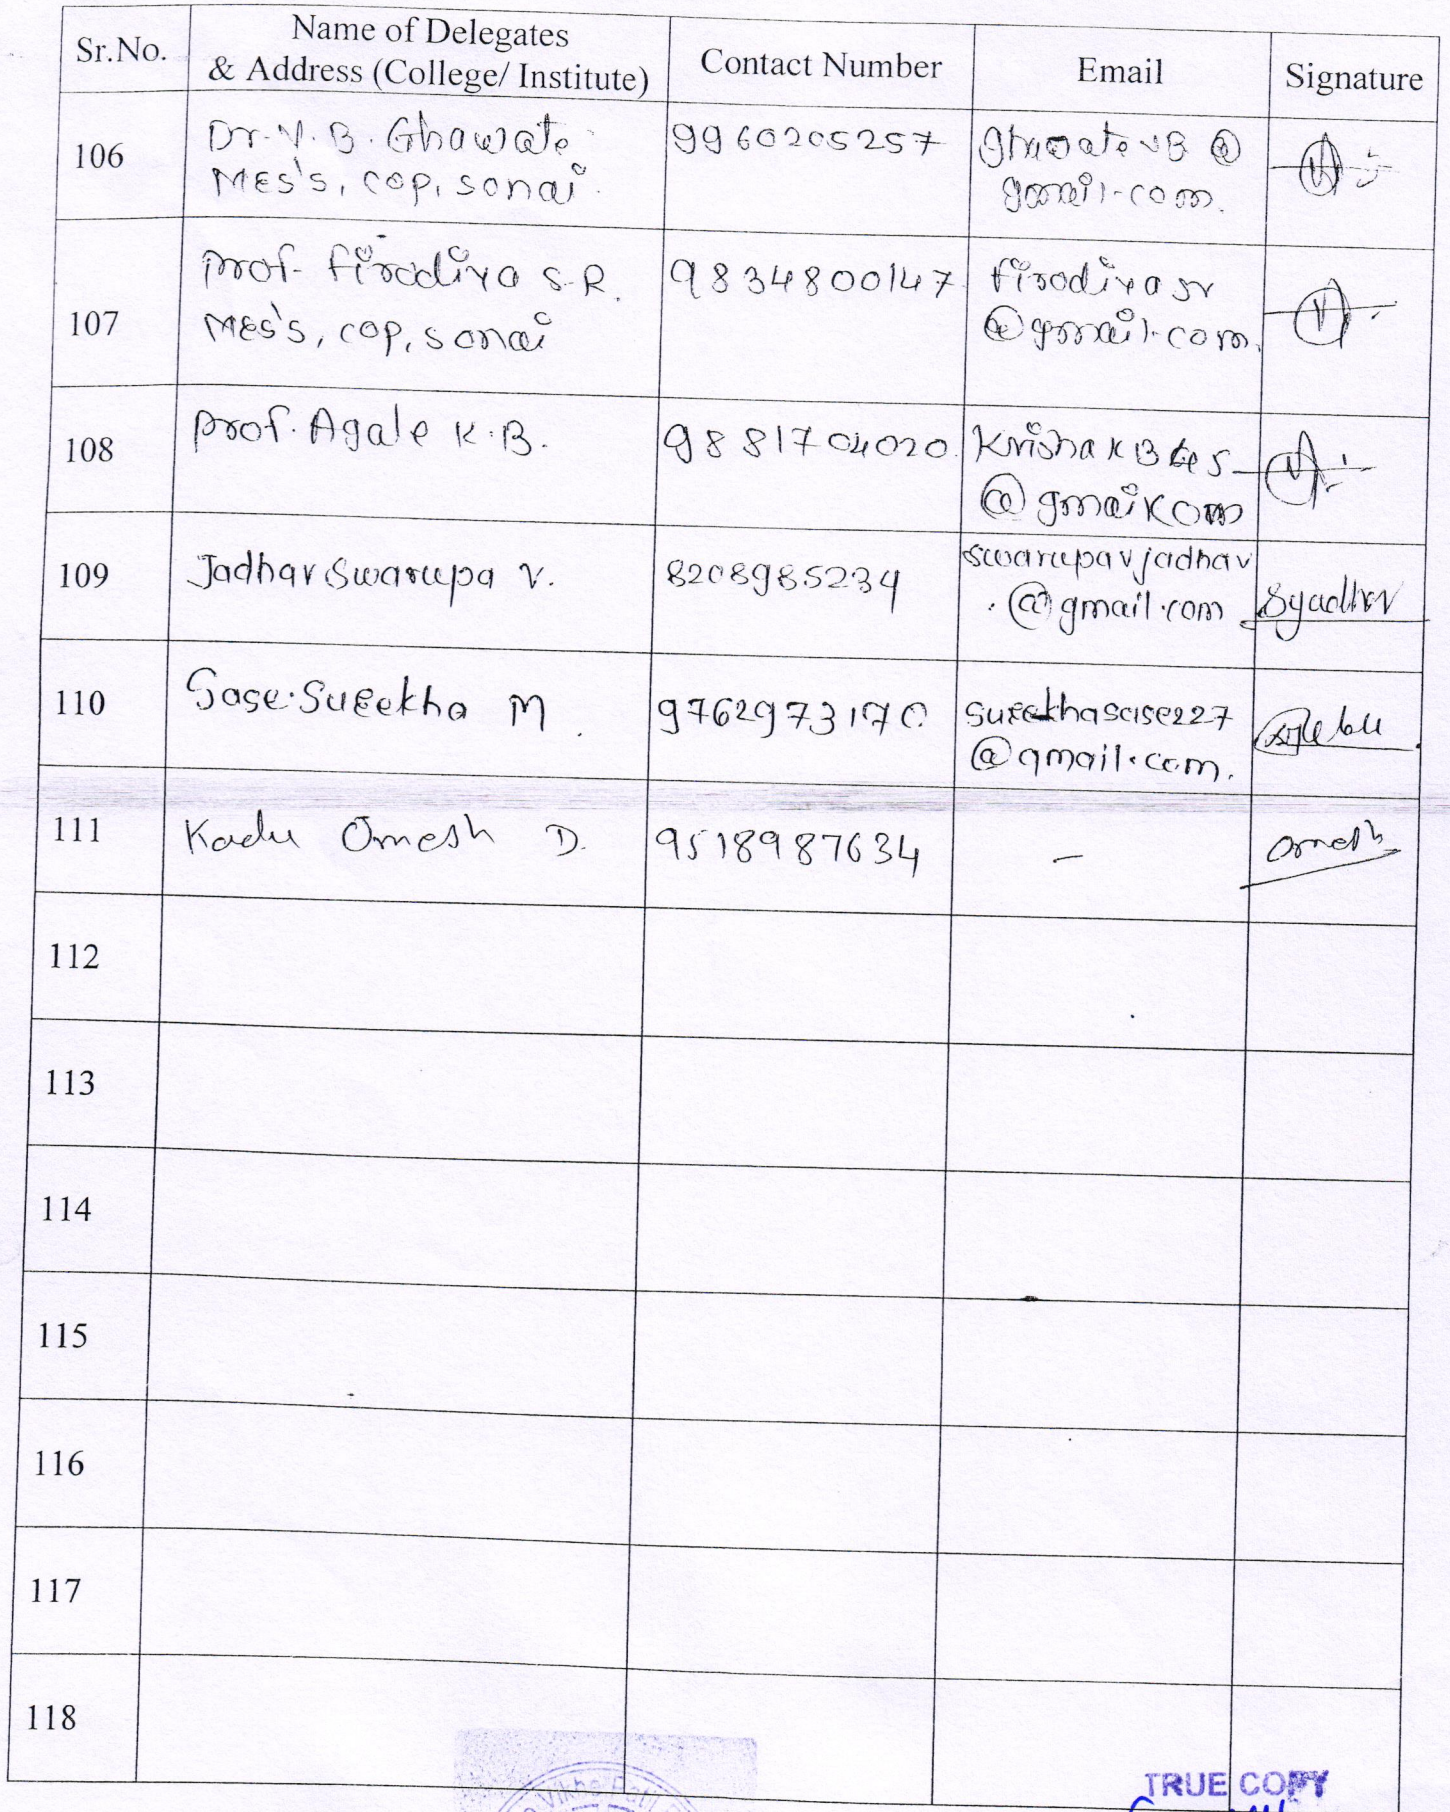 Sr.No.
Name of Delegates
& Address (College/ Institute)
Contact Number
Email
Signature
106
Dr. V. B. Ghawate
MES's, COP, sonai.
9960205257
ghawatevB @
gmail.com.
107
Prof. firodiya S.R.
MES's, COP, sonai
9834800147
firodiyasr
@gmail.com.
108
Prof. Agale K.B.
9881704020
@gmail.com
109
Jadhav Swarupa V.
8208985234
swarupavjadhav
@gmail.com
Sjadhav
110
Sase Surekha M.
9762973170
surekhasase227
@gmail.com.
111
Kadu Omesh D.
9518987634
-
Omesh
112
113
114
115
116
117
118
TRUE COPY